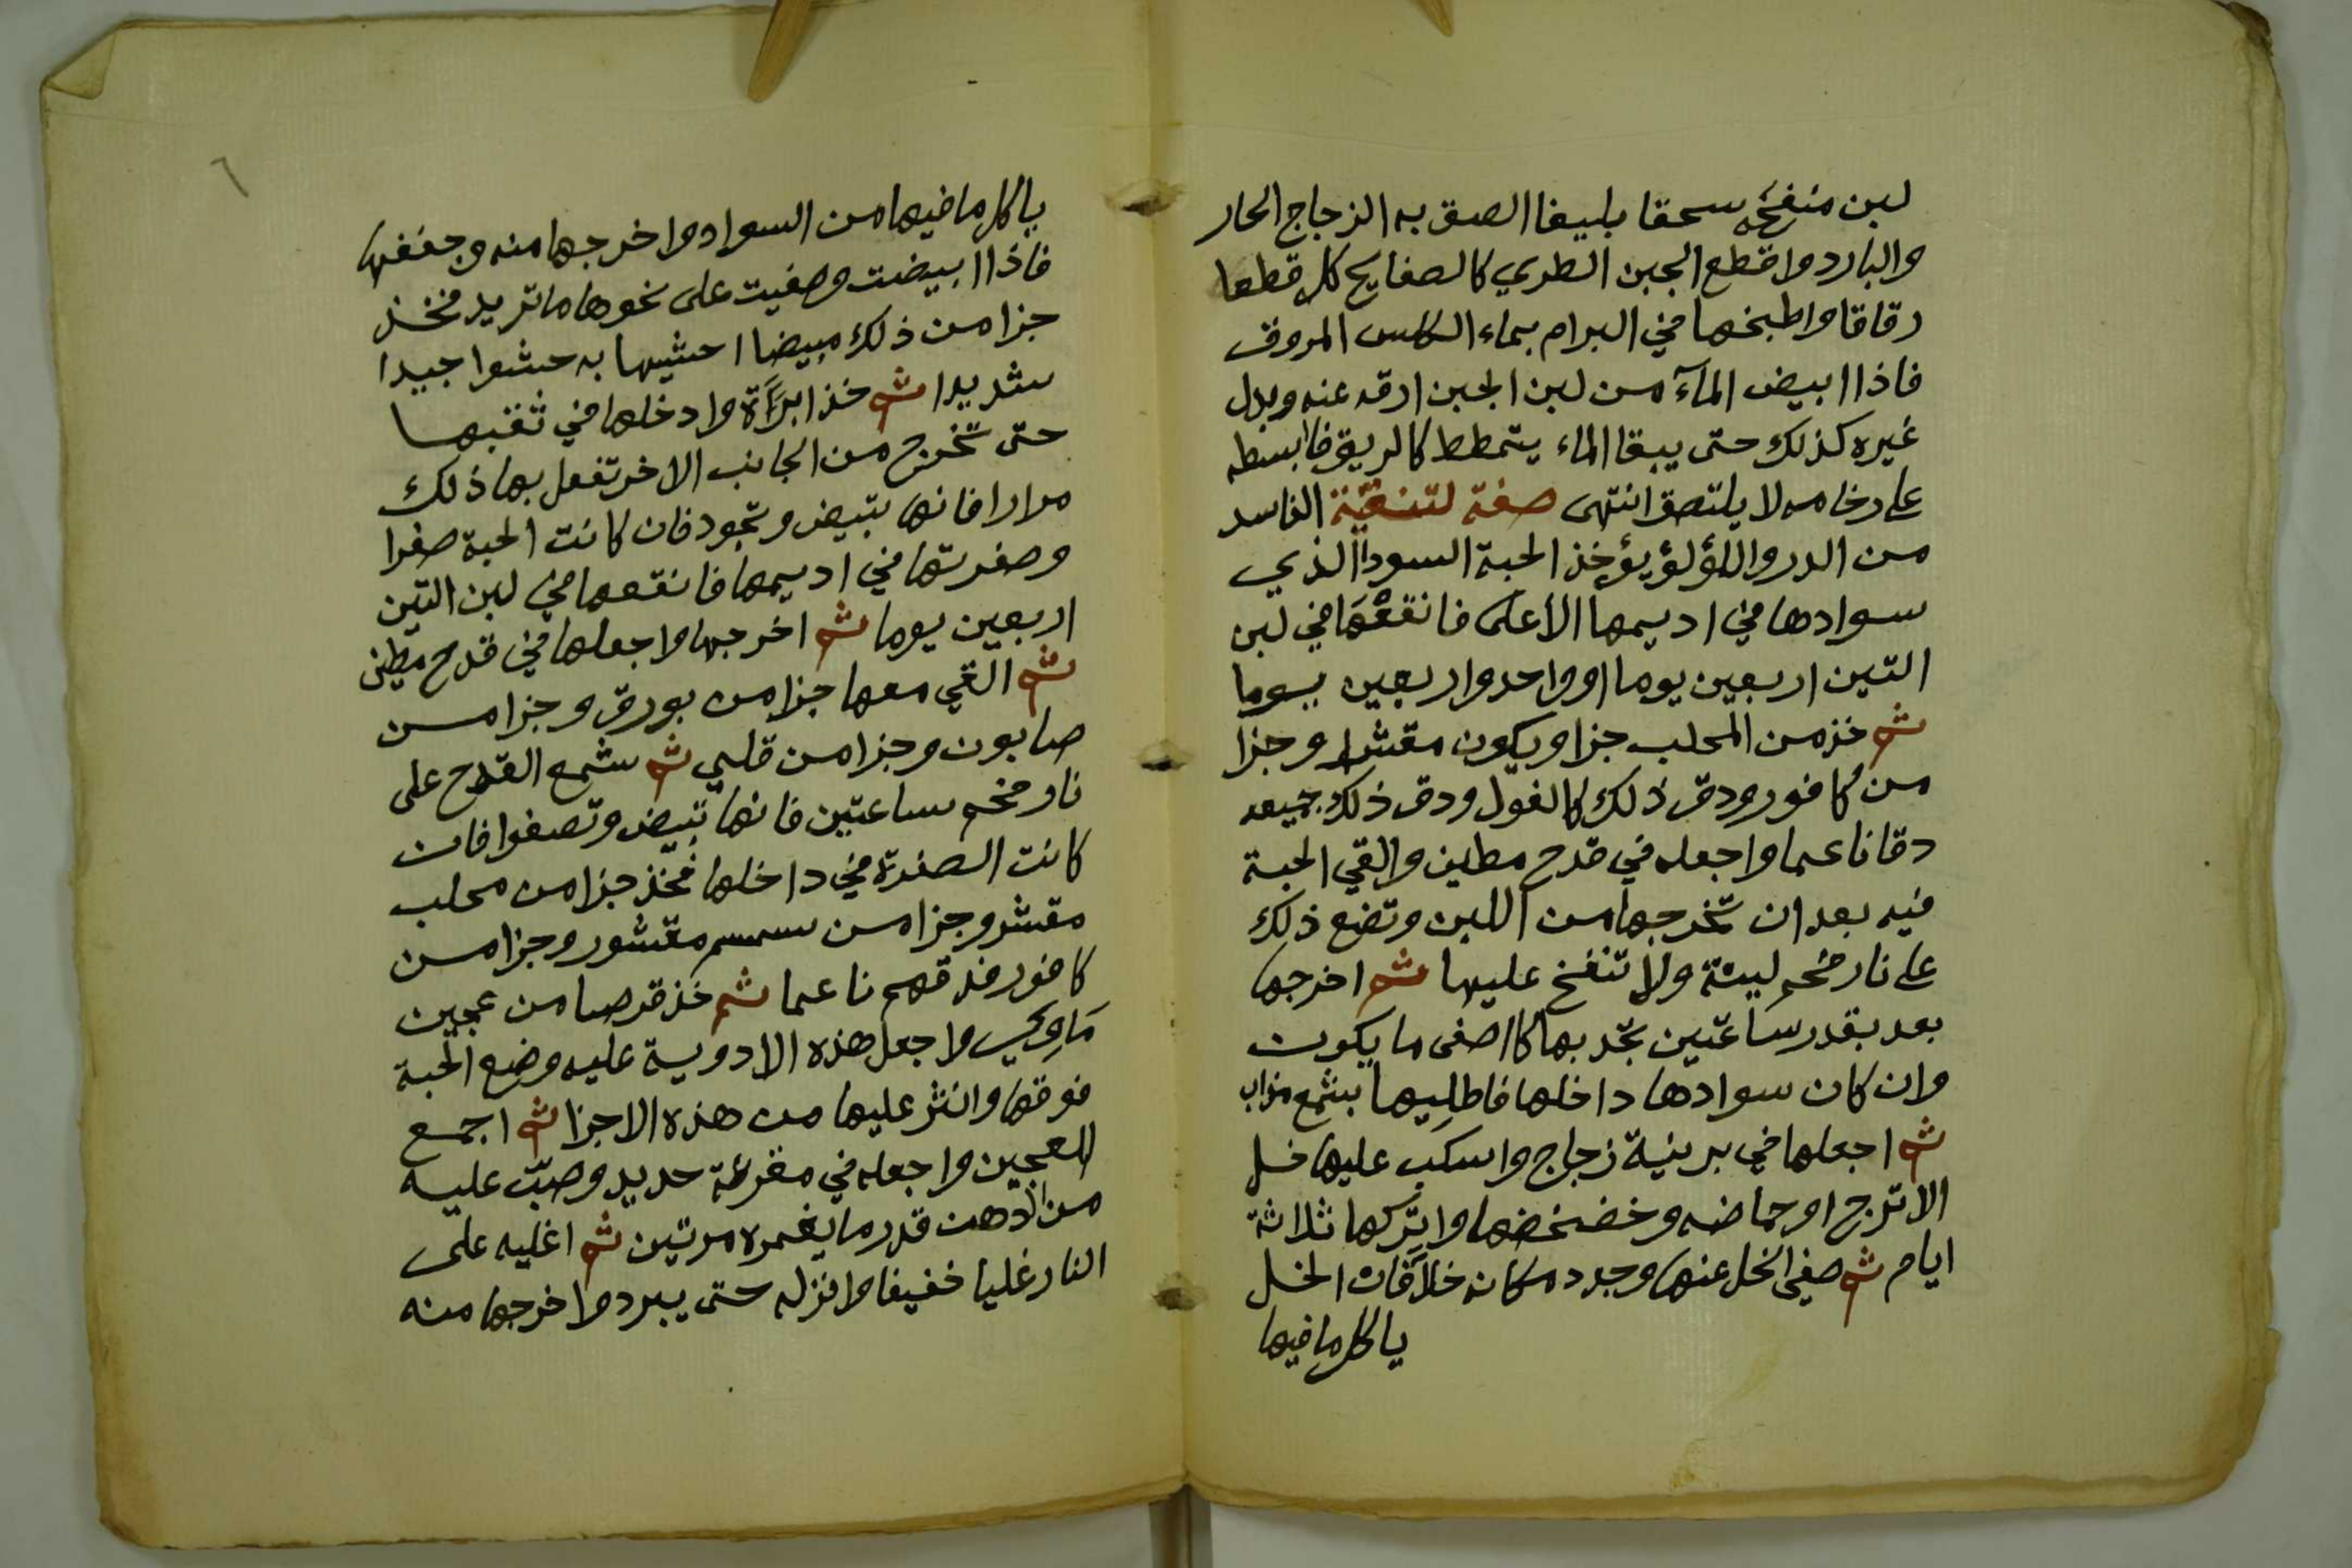 لبن منفخه سحقا بليغا الصق به الزجاج الحار
والبارد واقطع الجبن الطري كالصفايح كل قطعا
رقاقا واطبخها في البرام بماء الكلس المروق
فاذا ابيض المآء من لبن الجبن ارقه عنه وبدل
غيره كذلك حتى يبقا الماء يتمطط كالريق فابسطه
على رخامه لا يلتصق انتهى صفة لتنقية الفاسد
من الدر واللؤلؤ يؤخذ الحبة السودا الذي
سوادها في اديمها الاعلى فانقعها في لبن
التين اربعين يوما او واحد واربعين يوما
ثم خذ من المحلب جزا ويكون مقشرا وجزا
من كافور ودق ذلك كالفول ودق ذلك جميعه
دقا ناعما واجعله في قدح مطين والقي الحبة
فيه بعد ان تخرجها من اللبن وتضع ذلك
على نار فحم لينة ولا تنفخ عليها ثم اخرجها
بعد بقدر ساعتين تجد بها كااصفى ما يكون
وان كان سوادها داخلها فاطليها بشمع مذاب
ثم اجعلها في برنية زجاج واسكب عليها خل
الاترج او حماضه وخضخضها واتركها ثلاثة
ايام ثم صفي الخل عنها وجدد مكانه خلا فان الخل
ياكل ما فيها
٦
ياكل ما فيها من السواد واخرجها منه وجففها
فاذا ابيضت وصفيت على نحوها ما تريد فخذ
جزا من ذلك مبيضا احشيها به حشوا جيدا
شديدا ثم خذ ابرَة وادخلها في ثقبها
حتى تخرج من الجانب الاخر تفعل بها ذلك
مرارا فانها تبيض وتجود فان كانت الحبة صفرا
وصفرتها في اديمها فانقعها في لبن التين
اربعين يوما ثم اخرجها واجعلها في قدح مطين
ثم القي معها جزا من بورق وجزا من
صابون وجزا من قلي ثم شمع القدح على
نار فحم ساعتين فانها تبيض وتصفوا فان
كانت الصفرة في داخلها فخذ جزا من محلب
مقشر وجزا من سمسم مقشور وجزا من
كافور فدقهم ناعما ثم خذ قرصا من عجين
واجعل هذه الادوية عليه وضع الحبة
فوقها وانثر عليها من هذه الاجزا ثم اجمع
العجين واجعله في مغرفة حديد وصبّ عليه
من الدهن قدر ما يغمره مرتين ثم اغليه على
النار غليا خفيفا وانزله حتى يبرد واخرجها منه